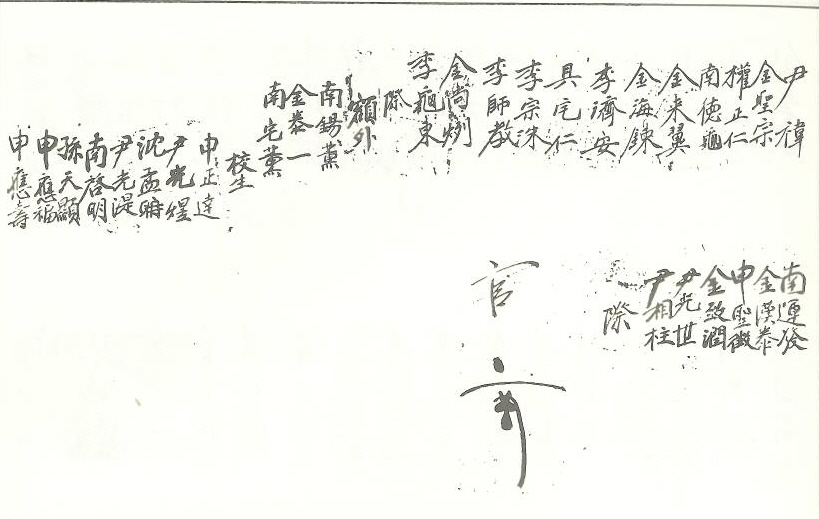 尹禕
金聖宗
權正仁
南德龜
金來翼
金海鍊
李濟安
具宅仁
李宗洙
李師教
金尚炯
李龜東
際
額外
南錫薰
金泰一
南屯薰
校生
申正達
尹光煜
沈孟
尹光湜
南啓明
孫天顯
申應福
申應壽
南運發
金漢泰
申聖徵
金致潤
尹光世
尹相柱
際
官